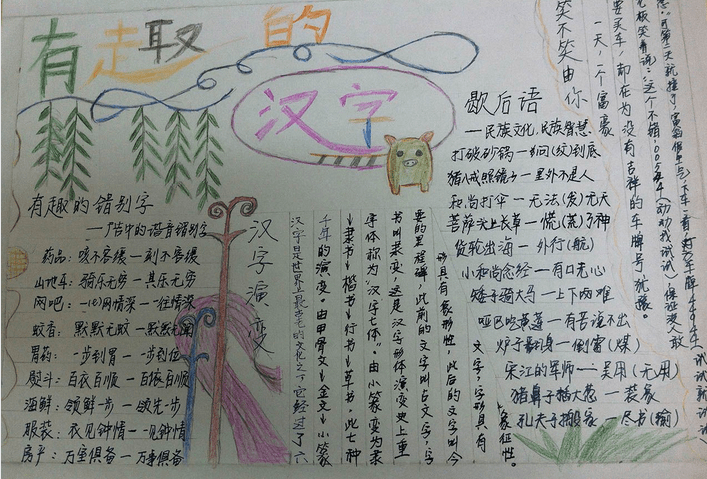 有趣的
汉字
有趣的错别字
—广告中的谐音错别字
药品：咳不容缓—刻不容缓
山地车：骑乐无穷—其乐无穷
网吧：一(e)网情深—往情深
蚊香：默默无蚊—默默无闻
胃药：一步到胃—一步到位
熨斗：百衣百顺—百依百顺
海鲜：领鲜一步—领先一步
服装：衣见钟情—一见钟情
房产：万室俱备—万事俱备
汉字演变
汉字是世界上最古老的文化之一，它经过了六
千年的演变。由甲骨文→金文→小篆
→隶书→楷书→行书→草书，此七种
字体称为“汉字七体”。由小篆变为隶
书叫隶变。这是汉字形体演变史上重
要的里程碑，此前的文字叫古文字，字
形具有象形性，此后的文字叫今
文字，字形具有
象征性。
歇后语
—民族文化，民族智慧
打破砂锅—问(纹)到底
猪八戒照镜子—里外不是人
和尚打伞—无法(发)无天
菩萨头上长草—慌(荒)了神
货轮出海—外行(航)
小和尚念经—有口无心
矮子骑大马—上下两难
哑巴吃黄莲—有苦说不出
炉子翻身—倒霉(煤)
宋江的军师—吴用(无用)
猪鼻子插大葱—装象
孔夫子搬家—尽书(输)
笑不笑由你
一天，一个富豪
要买车，却在为没有吉祥的车牌号犹豫。
老板笑着说：“这个不错：00544(动动我试试)，保证没人敢